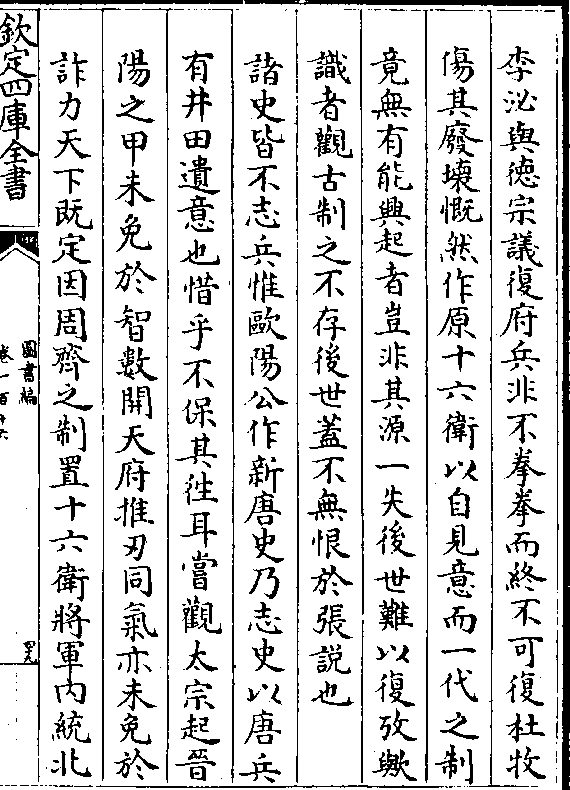 李泌與德宗議復府兵非不拳拳而終不可復杜牧
傷其廢壞慨然作原十六衛以自見意而一代之制
竟無有能興起者豈非其源一失後世難以復攷歟
識者觀古制之不存後世蓋不無恨於張說也
諸史皆不志兵惟歐陽公作新唐史乃志史以唐兵
有井田遺意也惜乎不保其徃耳嘗觀太宗起晉
陽之甲未免於智數開天府推刃同氣亦未免於
詐力天下既定因周齊之制置十六衛將軍内統北
欽定四庫全書
圖書編
卷一百十六